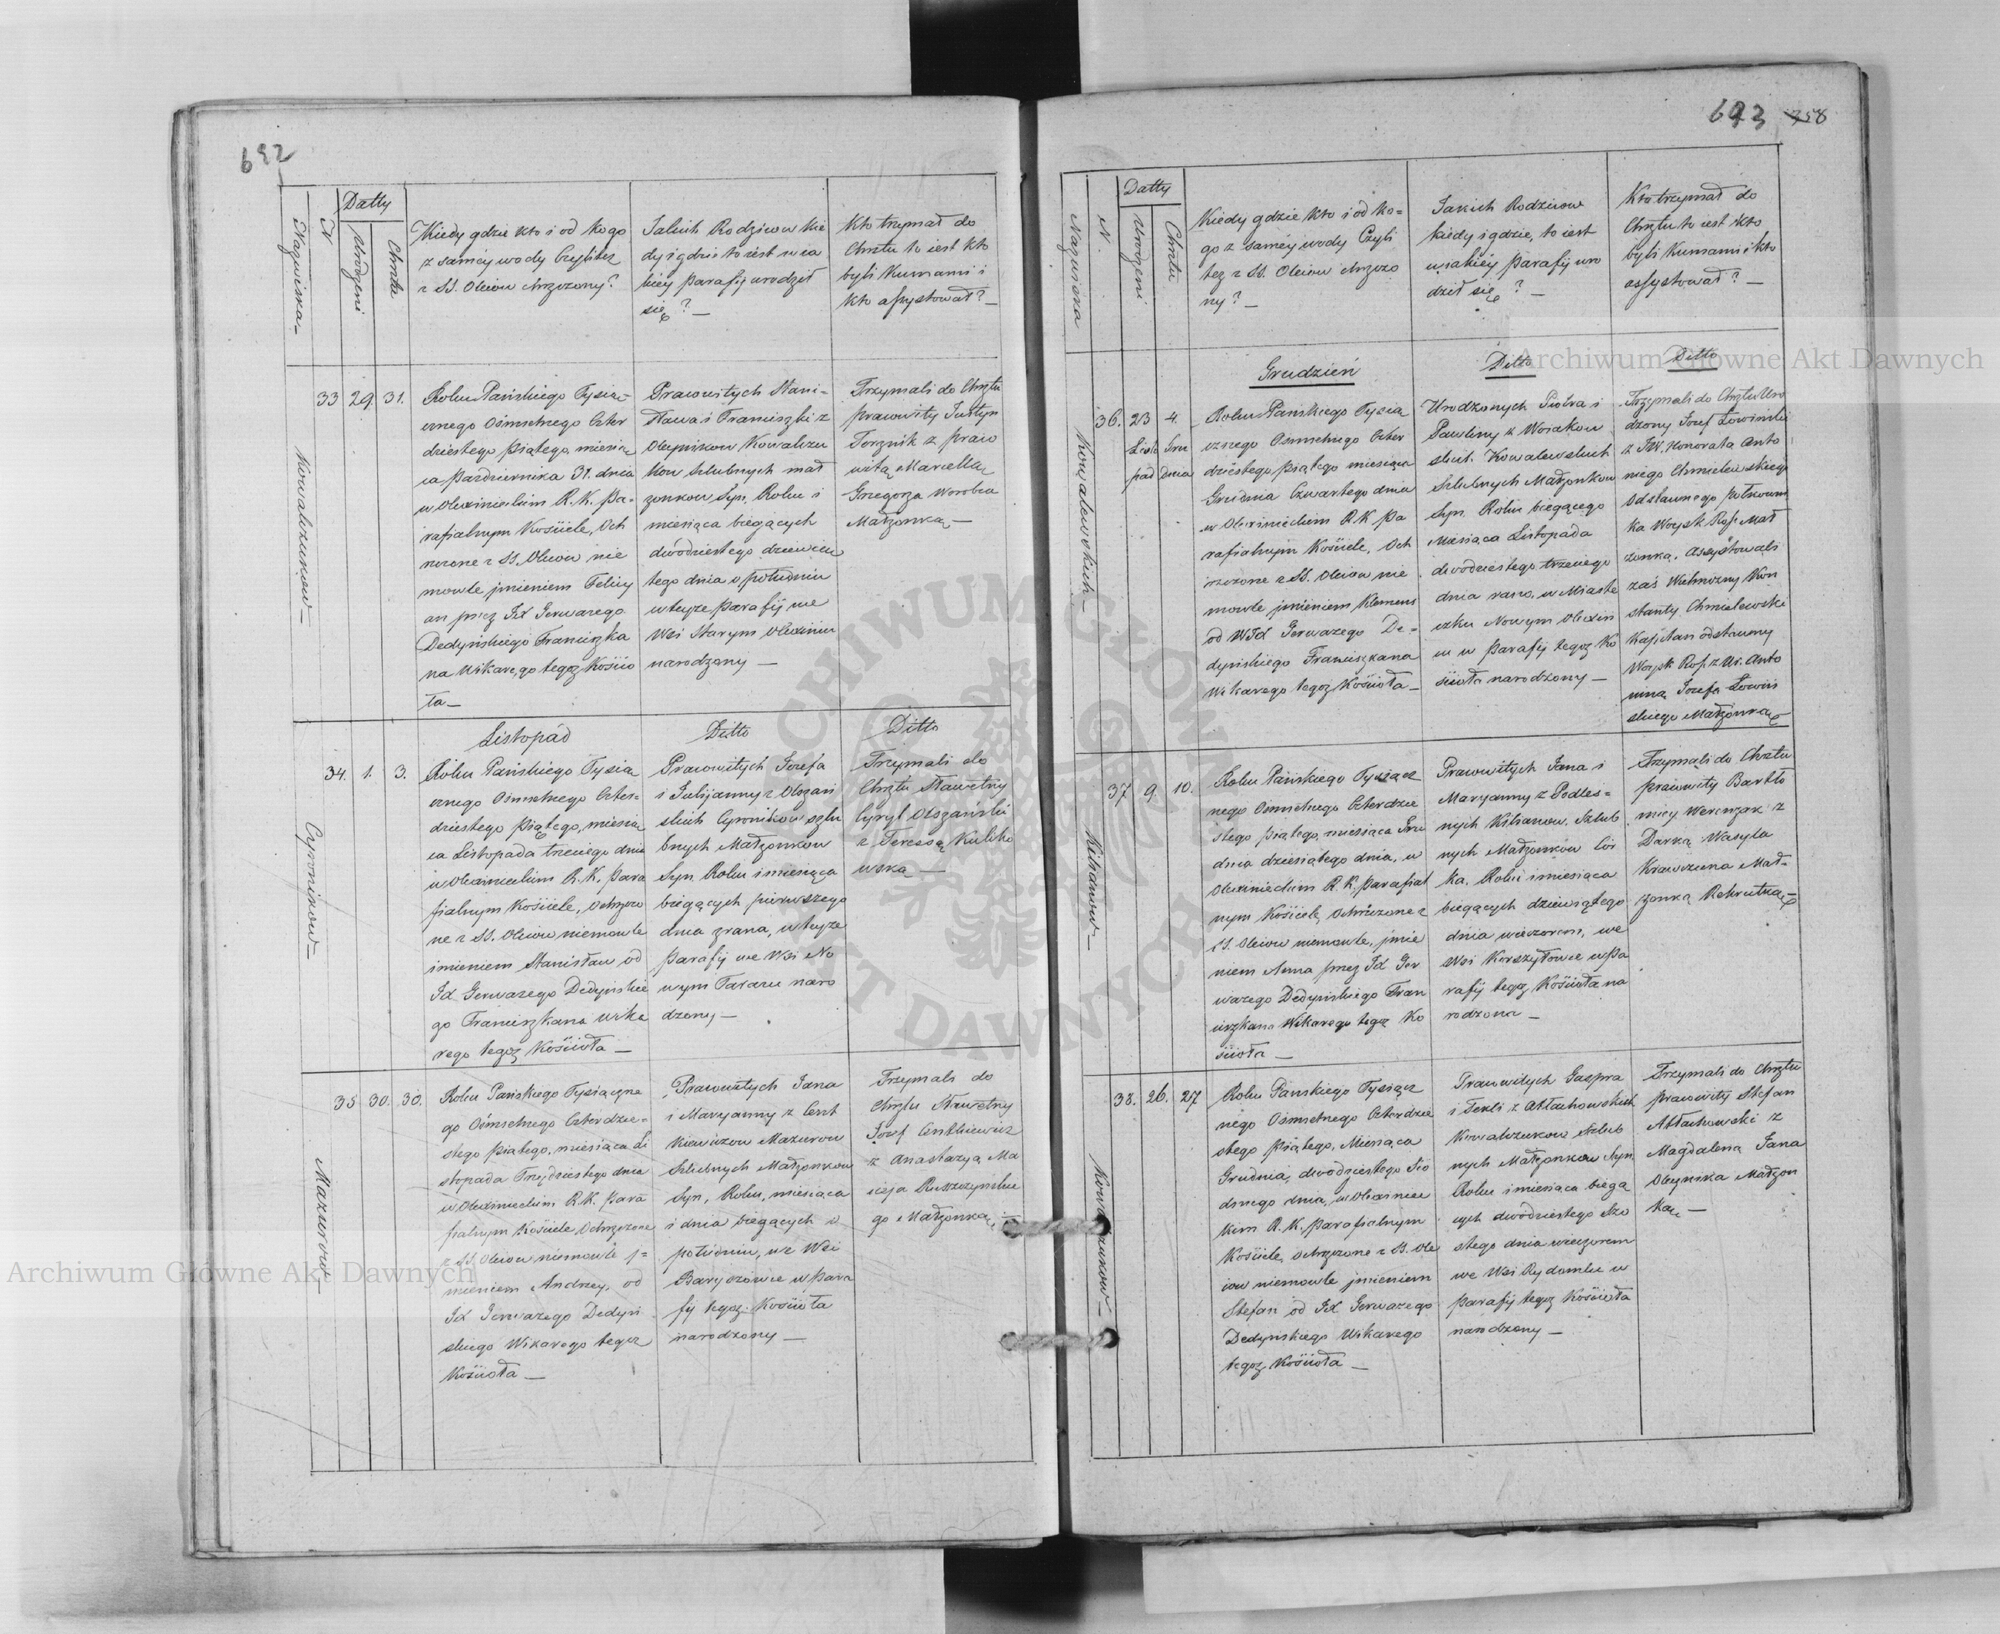 692
Nazwiska
N
Datty
Urodzeni
Chrztu
Kiedy gdzie kto i od kogo
z samey wody Czylitez
z SS. Oleiow chrzczony?
Jakich Rodziców kie
dy i gdzie to iest w ia
kiey parafij urodził
się? —
Kto trzymał do
Chrztu to iest kto
byli Kumami i
kto assystował? —
Kowalczukow —
33
29
31.
Roku Pańskiego Tysią-
cznego Ośmsetnego Czter
dziestego piątego, miesią
ca Pazdziernika 31. dnia
w Olexinieckim R. K. Pa-
rafialnym Kościele, Och
rzczone z SS. Oleiow nie
mowle jmieniem Felicy
an przez Jx Gerwazego
Dedyńskiego Franciszka
na Wikarego tegoz Kościo
ła —
Prawowitych Stani-
sława i Franciszki z
Oleynikow Kowalczu
kow szlubnych mał
zonkow Syn. Roku i
miesiąca biegących
dwódziestego dziewią
tego dnia o południu
w teyze parafij we
Wsi Starym Olexińcu
narodzony —
Trzymali do Chrztu
prawowity Justyn
Torznik z praw
witą Marcellą
Grzegorza Worobca
Małzonką —
Listopad
Ditto
Ditto
Cyronikow —
34.
1.
3.
Roku Pańskiego Tysią
cznego Osmsetnego Czter-
dziestego piątego, miesią
ca Listopada trzeciego dnia
w Olexinieckim R. K. para
fialnym Kościele, Ochrzczo
ne z SS. Oleiow niemowle
imieniem Stanisław od
Jx Gerwazego Dedyńskie
go Franciszkana wika
rego tegoz Kościoła —
Prawowitych Jozefa
i Julijanny z Olszań
skich Cyronikow szlu
bnych Małzonkow
Syn. Roku i miesiąca
biegących pierwszego
dnia zrana, w teyze
parafij we Wsi No
wym Tarazu naro
dzony —
Trzymali do
Chrztu Sławetny
Cyryl Olszański
z Teressą Kuliko
wską —
Mazurow —
35
30.
30.
Roku Pańskiego Tysiączne
go Osmsetnego Czterdzie-
stego piątego, miesiąca Li
stopada Trzydziestego dnia
w Olexinieckim R. K. para
fialnym Kościele, Ochrzczone
z SS. Oleiow niemowle j-
mieniem Andrzey, od
Jx Gerwazego Dedyń
skiego Wikarego tegoz
Kościoła —
Prawowitych Jana
i Maryanny z Cent
kiewiczow Mazurow
Szlubnych Małzonkow
Syn, Roku, miesiąca
i dnia biegących o
południu, we Wsi
Baryczowce w para
fij tegoz Kościoła
narodzony —
Trzymali do
Chrztu Sławetny
Jozef Centkiewicz
z Anastazyą Ma
cieja Ruszczyńskie
go Małzonką
693
758
Nazwiska
N.
Datty
Urodzeni
Chrztu
Kiedy gdzie kto i od ko-
go z samey wody Czyli
tez z SS. Oleiow chrzczo
ny? —
Jakich Rodziców
kiedy i gdzie, to iest
w iakiey parafij uro
dził się? —
Kto trzymał do
Chrztu to iest kto
byli Kumami i kto
assystował? —
Grudzień
Ditto
Ditto
Kowalewskich —
36.
23
Listo
pad
4.
Gru
dnia
Roku Pańskiego Tysią
cznego Osmsetnego Czter
dziestego piątego miesiąca
Grudnia Czwartego dnia
w Olexinieckim R. K. pa
rafialnym Kościele, Och
rzczone z SS. Oleiow nie
mowle jmieniem Klemens
od WJx Gerwazego De-
dyńskiego Franciszkana
Wikarego tegoz Kościoła —
Urodzonych Piotra i
Pauliny z Worakow
skich Kowalewskich
Szlubnych Małzonkow
Syn. Roku biegącego
Miesiąca Listopada
dwodziestego trzeciego
dnia rano, w Miaste
czku Nowym Olexin
cu w parafij tegoz Ko
ścioła narodzony —
Trzymali do Chrztu Uro
dzony Jozef Łowiński
z JW. Honoratą Anto
niego Chmielewskiego
Odstawnego półkowni
ka Woysk Ros: Mał
zonką. Assystowali
zaś Wielmozny Kon
stanty Chmielewski
Kapitan odstawny
Woysk Ros. z Ur. Anto
niną Jozefa Łowiń
skiego Małzonką
Kilianow —
37
9.
10.
Roku Pańskiego Tysiącz
nego Osmsetnego Czterdzie
stego piątego, miesiąca Gru
dnia dziesiątego dnia, w
Olexinieckim R. K. parafial
nym Kościele, Ochrzczone z
SS. Oleiow niemowle, jmie
niem Anna przez Jx Ger
wazego Dedyńskiego Fran
ciszkana Wikarego tegoz Ko
ścioła —
Prawowitych Jana i
Maryanny z Podles-
nych Kilianow, Szlub
nych Małzonkow Cór
ka. Roku i miesiąca
biegących dziewiątego
dnia wieczorem, we
Wsi Korszyłowce w pa
rafij tegoz Kościoła na
rodzona —
Trzymali do Chrztu
prawowity Bartło
miey Werenzak z
Darką Wasyla
Krawczuna Mał-
zonką Rekrutką —
Kowalczukow —
38.
26.
27
Roku Pańskiego Tysiącz
nego Osmsetnego Czterdzie
stego piątego, Miesiąca
Grudnia, dwodziestego Sio
dmego dnia, w Olexiniec
kim R. K. parafialnym
Kościele, Ochrzczone z SS. Ole
iow niemowle jmieniem
Stefan od Jx Gerwazego
Dedyńskiego Wikarego
tegoz Kościoła —
Prawowitych Gaspra
i Tekli z Attachowskich
Kowalczukow Szlub
nych Małzonkow Syn
Roku i miesiąca biegą
cych dwodziestego Szo
stego dnia wieczorem
we Wsi Rydomlu w
parafij tegoz Kościoła
narodzony —
Trzymali do Chrztu
prawowity Stefan
Attachowski z
Magdaleną Jana
Oleynika Małzon
ką —
Archiwum Główne Akt Dawnych
Archiwum Główne Akt Dawnych
ARCHIWUM GŁÓWNE AKT DAWNYCH